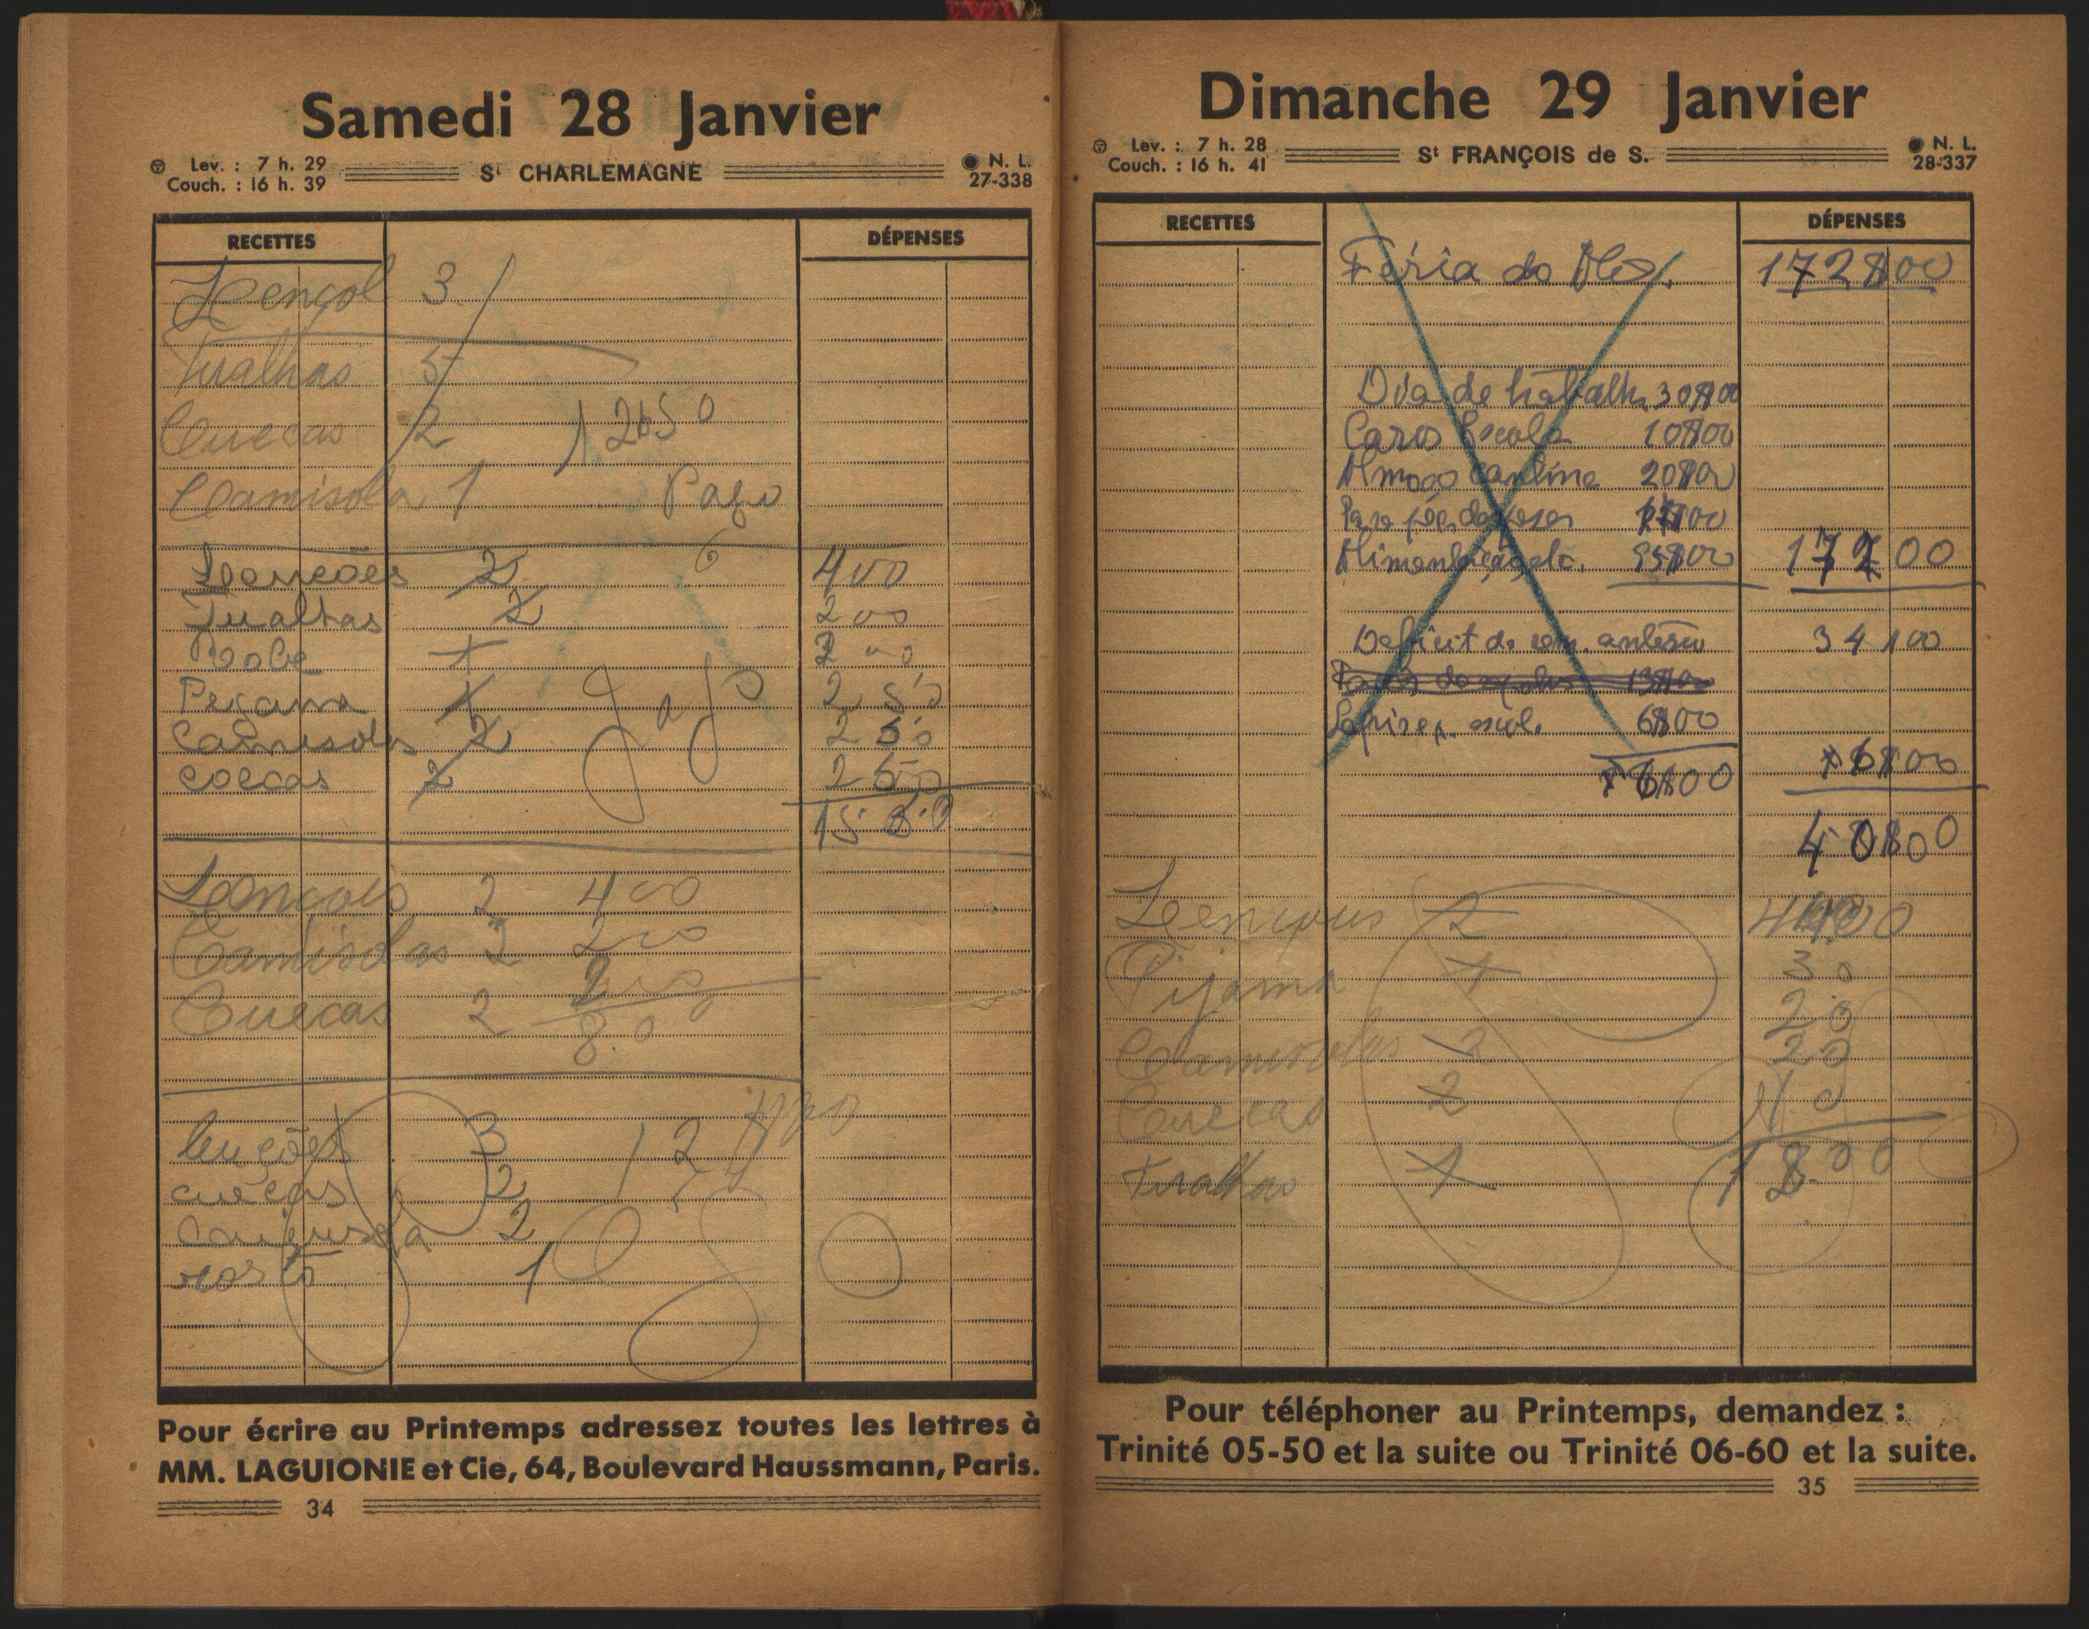 Samedi 28 Janvier
Lev. : 7 h. 29
Couch. : 16 h. 39
St CHARLEMAGNE
N. L.
27-338
RECETTES DÉPENSES
Lençol 3
Tualhas 5
Cuecas 2 12650
Camisola 1 Pago
Lencões 2 400
Tualhas 2 200
Robe 1 200
Pejama 1 2 50
Camisolas 2 2 50
coecas 2 2 50
Lançois 2 400
Camisolas 2 200
Cuecas 2 200
8.00
lençoes 3
cuecas 2
Camisola 2
1
Pour écrire au Printemps adressez toutes les lettres à
MM. LAGUIONIE et Cie, 64, Boulevard Haussmann, Paris.
34
Dimanche 29 Janvier
Lev. : 7 h. 28
Couch. : 16 h. 41
St FRANÇOIS de S.
N. L.
28-337
RECETTES DÉPENSES
Féria do 172$00
Dia de trabalho 30$00
Escola 10$00
Almoço cantina 20$00
Alimentação etc. 95$00 172 00
Deficit da sem. anterior 34$00
escol. 6$00
6$00 6$00
40$00
Lençous 2
Pijama 1 30
20
Camisolas 2 20
Cuecas 2
Tualhas 1 1800
Pour téléphoner au Printemps, demandez :
Trinité 05-50 et la suite ou Trinité 06-60 et la suite.
35